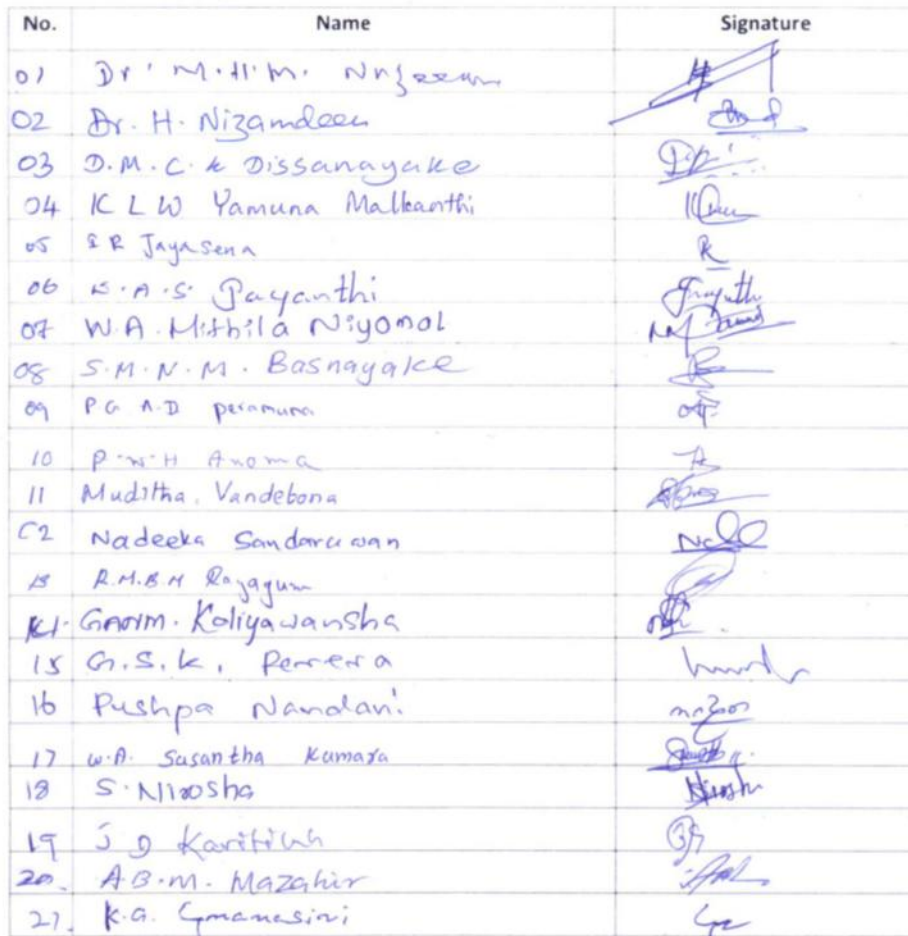 No. Name Signature
01 Dr. M.H.M.
02 Dr. H. Nizamdeen
03 D.M.C.K Dissanayake
04 K L W Yamuna Malkanthi
05 S R Jayasena
06 K.A.S. Jayanthi
07 W.A. Mithila Niyomal
08 S.M.N.M. Basnayake
09 P G A.D peramuna
10 P.W.H Anoma
11 Muditha. Vandebona
12 Nadeeka Sandaruwan
13 R.M.B.M
14. Kaliyawansha
15 G.S.K. Perera
16 Pushpa Nandani
17 W.A. Susantha Kumara
18 S. Nirosha Nirosh
19 J D
20. A.B.M. Mazahir
21. K.G.